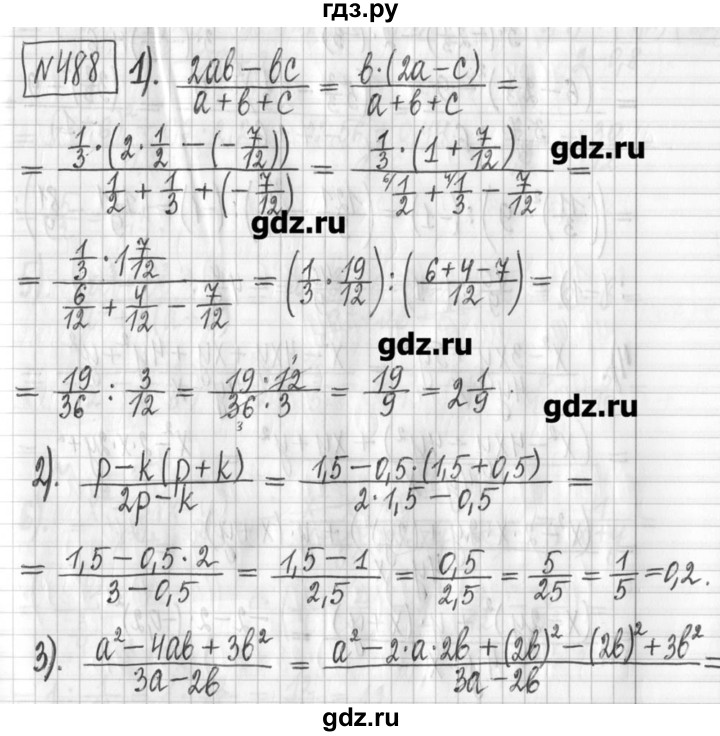 гдз.ру
№488 1). (2ab - bc)/(a + b + c) = (b·(2a - c))/(a + b + c) =
= (1/3·(2·1/2 - (-7/12)))/(1/2 + 1/3 + (-7/12)) = (1/3·(1 + 7/12))/(⁶⁾1/2 + ⁴⁾1/3 - 7/12) =
gdz.ru
gdz.ru
= (1/3·1 7/12)/(6/12 + 4/12 - 7/12) = (1/3·19/12):((6+4-7)/12) =
gdz.ru
= 19/36 : 3/12 = (19·12)/(36·3) = 19/9 = 2 1/9.
1
3
gdz.ru
2). (p - k(p + k))/(2p - k) = (1,5 - 0,5·(1,5 + 0,5))/(2·1,5 - 0,5) =
= (1,5 - 0,5·2)/(3 - 0,5) = (1,5 - 1)/2,5 = 0,5/2,5 = 5/25 = 1/5 = 0,2.
3). (a² - 4ab + 3b²)/(3a - 2b) = (a² - 2·a·2b + (2b)² - (2b)² + 3b²)/(3a - 2b) =
gdz.ru